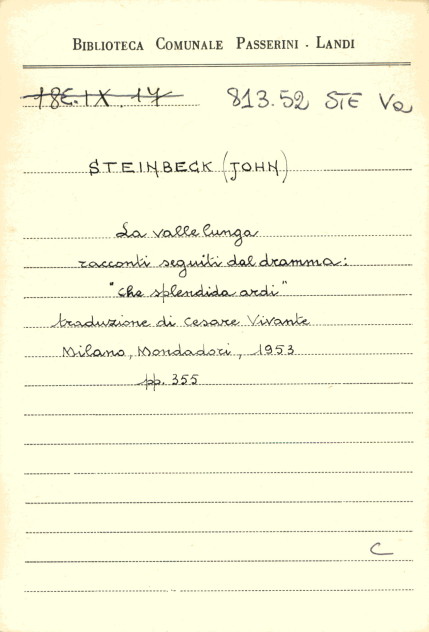 BIBLIOTECA COMUNALE PASSERINI - LANDI
18E.IX.17 813.52 STE Va
STEINBECK (JOHN)
La valle lunga
racconti seguiti dal dramma:
"che splendida ardi"
traduzione di Cesare Vivante
Milano, Mondadori, 1953
pp. 355
C